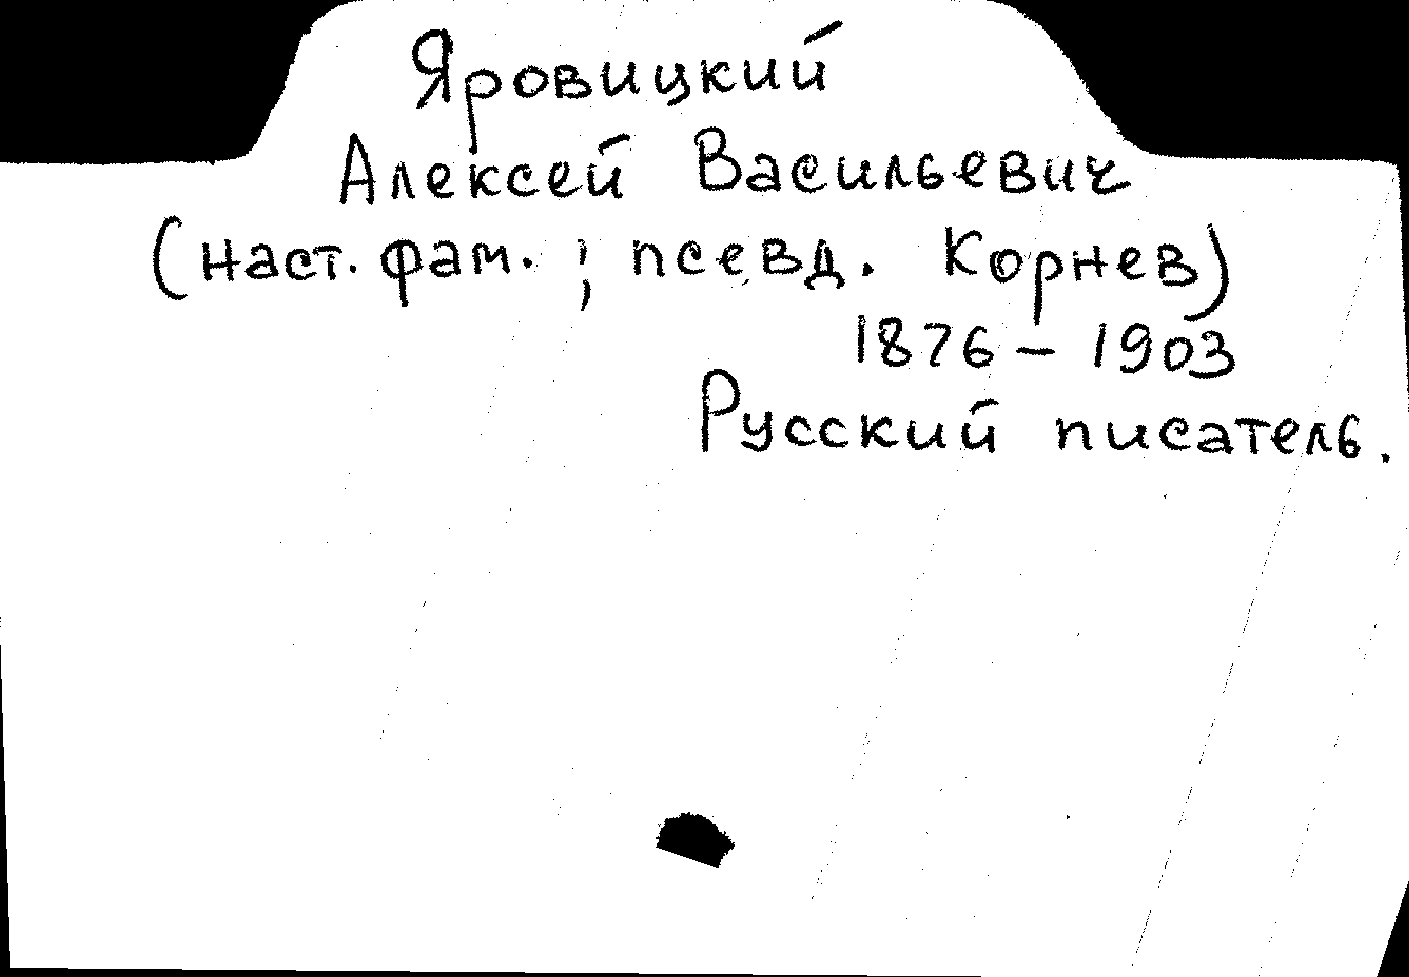 Яровицкий
Алексей Васильевич
(наст. фам.; псевд. Корнев)
1876 – 1903
Русский писатель.